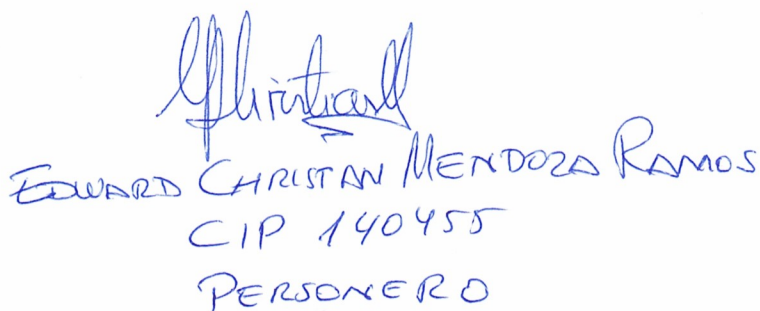 Christian
EDWARD CHRISTIAN MENDOZA RAMOS
CIP 140455
PERSONERO